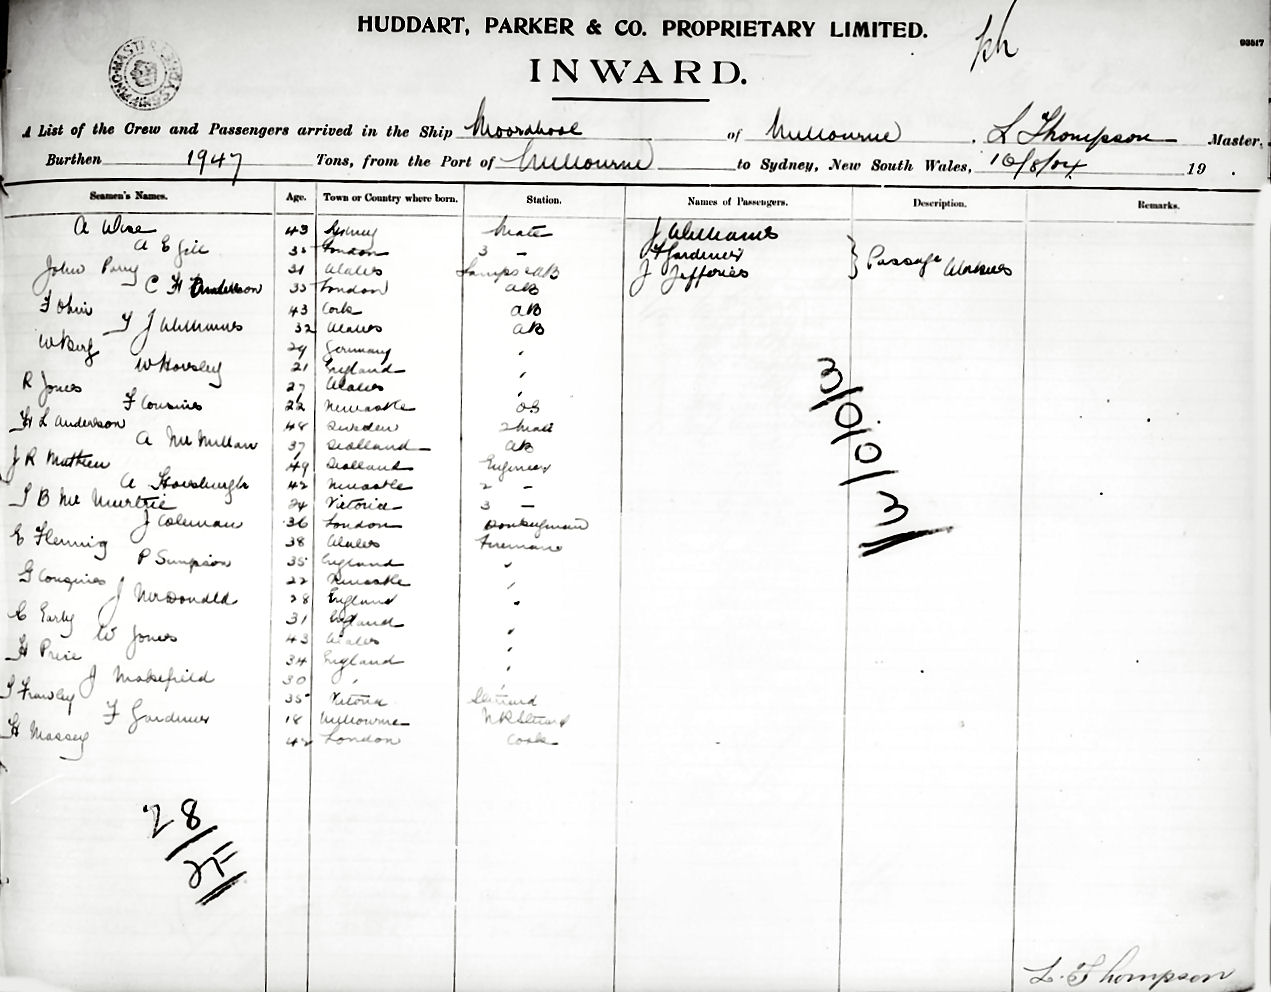 HUDDART, PARKER & CO. PROPRIETARY LIMITED.
INWARD.
A List of the Crew and Passengers arrived in the Ship Moorabool of Melbourne, L Thompson Master,
Burthen 1947 Tons, from the Port of Melbourne to Sydney, New South Wales, 10/8/04 19 .
Seamen's Names. Age. Town or Country where born. Station. Names of Passengers. Description. Remarks.
A Wise 43 Sydney Mate J Williams
A E Gill 35 London 3 - F Gardiner
John Parry 31 Wales Lamps & AB J Jefferies Passage Workers
C H Anderson 35 London AB
43 Cork AB
T J Williams 32 Wales AB
W Berg 29 Germany "
W Horsley 21 England "
R Jones 27 Wales "
F Cousins 22 Newcastle OS
H L Anderson 48 Sweden 2 Mate
A McMillan 37 Scotland AB
J R Mathew 49 Scotland Engineer
A Horsburgh 42 Newcastle 2 -
McMurtrie 24 Victoria 3 -
J Coleman 36 London Donkeyman
E Fleming 38 Wales Fireman
P Simpson 35 England "
G 22 Newcastle "
J McDonald 28 England "
C Early 31 England
W Jones 43 Wales "
H Price 34 England "
J Makefield 30 " "
Frawley 35 Victoria Steward
F Gardiner 18 Melbourne Steward
H Massey 42 London Cook
3/0/0/3
28
L. Thompson